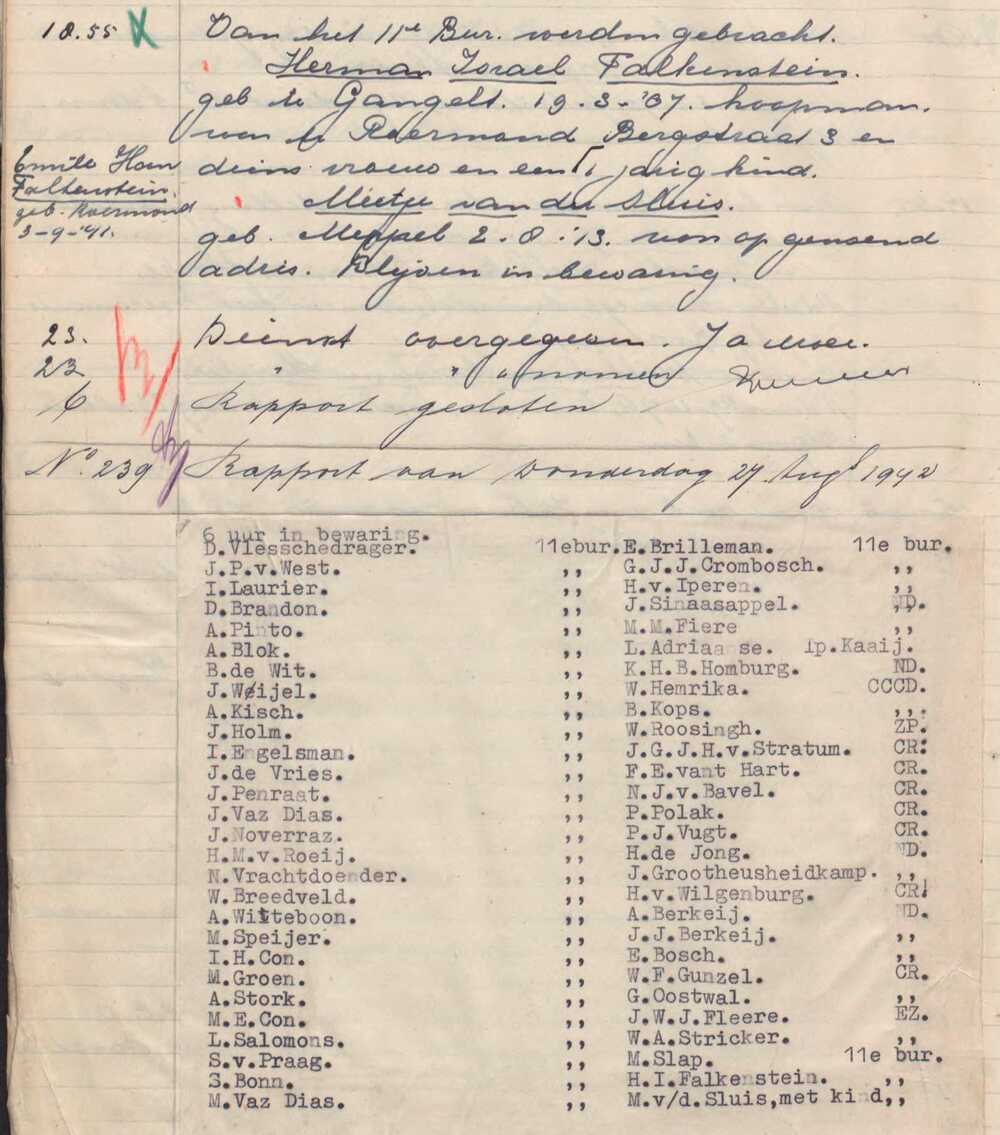 18.55 X Van het 11de Bur. werden gebracht.
Herman Israel Falkenstein.
geb te Gangelt. 19-3-'07. koopman.
won te Roermond Bergstraat 3 en
diens vrouw en een 1 jarig kind.
Emile Hoen
Falkenstein.
geb. Roermond
3-9-'41.
Mietje van der Sluis.
geb. Meppel 2-8-'13. won op genoemd
adres. Blijven in bewaring.
23. Dienst overgegeven.
23 " " " nomen
6 Rapport gesloten
No. 239 Rapport van Donderdag 27 Augs 1942
6 uur in bewaring.
D.Vlesschedrager. 11ebur. E.Brilleman. 11e bur.
J.P.v.West. ,, G.J.J.Crombosch. ,,
I.Laurier. ,, H.v.Iperen. ,,
D.Brandon. ,, J.Sinaasappel. ND.
A.Pinto. ,, M.M.Fiere ,,
A.Blok. ,, L.Adriaanse. Ip.Kaaij.
B.de Wit. ,, K.H.B.Homburg. ND.
J.Weijel. ,, W.Hemrika. CCCD.
A.Kisch. ,, B.Kops. ,,.
J.Holm. ,, W.Roosingh. ZP.
I.Engelsman. ,, J.G.J.H.v.Stratum. CR.
J.de Vries. ,, F.E.vant Hart. CR.
J.Penraat. ,, N.J.v.Bavel. CR.
J.Vaz Dias. ,, P.Polak. CR.
J.Noverraz. ,, P.J.Vugt. CR.
H.M.v.Roeij. ,, H.de Jong. ND.
N.Vrachtdoender. ,, J.Grootheusheidkamp. ,,
W.Breedveld. ,, H.v.Wilgenburg. CR.
A.Witteboon. ,, A.Berkeij. ND.
M.Speijer. ,, J.J.Berkeij. ,,
I.H.Con. ,, E.Bosch. ,,
M.Groen. ,, W.F.Gunzel. CR.
A.Stork. ,, G.Oostwal. ,,
M.E.Con. ,, J.W.J.Fleere. EZ.
L.Salomons. ,, W.A.Stricker. ,,
S.v.Praag. ,, M.Slap. 11e bur.
S.Bonn. ,, H.I.Falkenstein. ,,
M.Vaz Dias. ,, M.v/d.Sluis,met kind,,